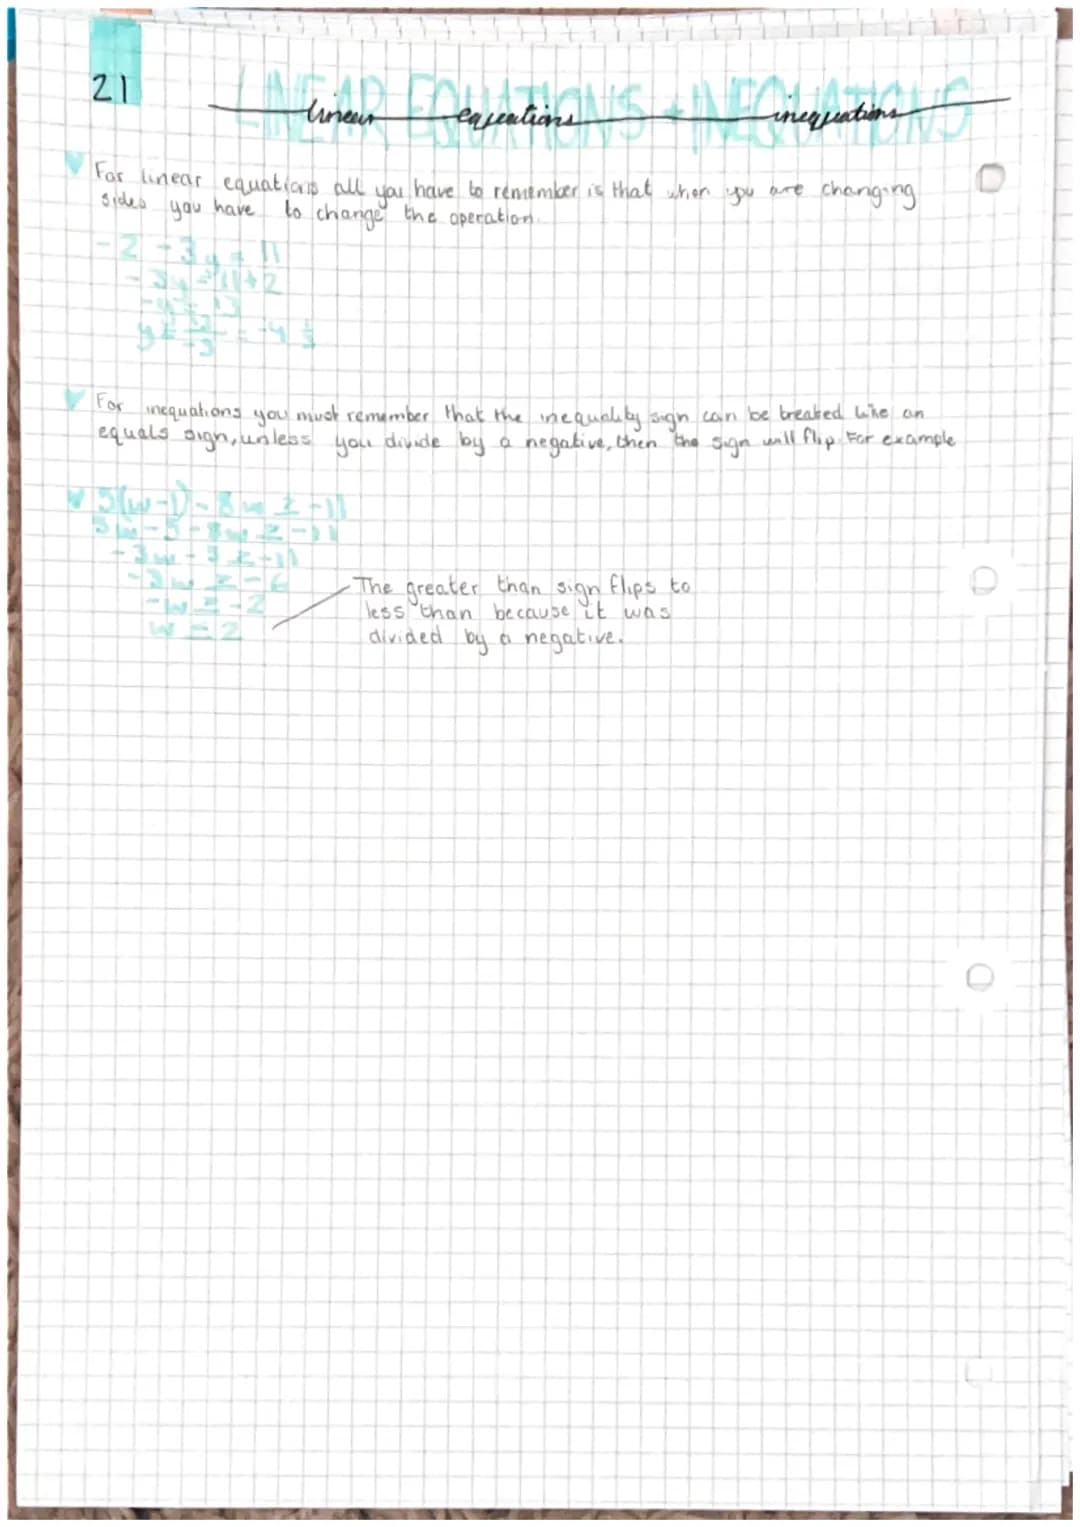 21
LINEAR EQUATIONS + INEQUATIONS
linear equations inequations
For linear equations all you have to remember is that when you are changing
sides you have to change the operation.
-2 -3y = 11
-3y = 11+2
For inequations you must remember that the inequality sign can be treated like an
equals sign, unless you divide by a negative, then the sign will flip. For example
5(w-1)-8w ≥ -11
5w-5-8w ≥ -11
-3w-5 ≥ -11
-3w ≥ -6
-w ≥ -2
The greater than sign flips to
less than because it was
divided by a negative.